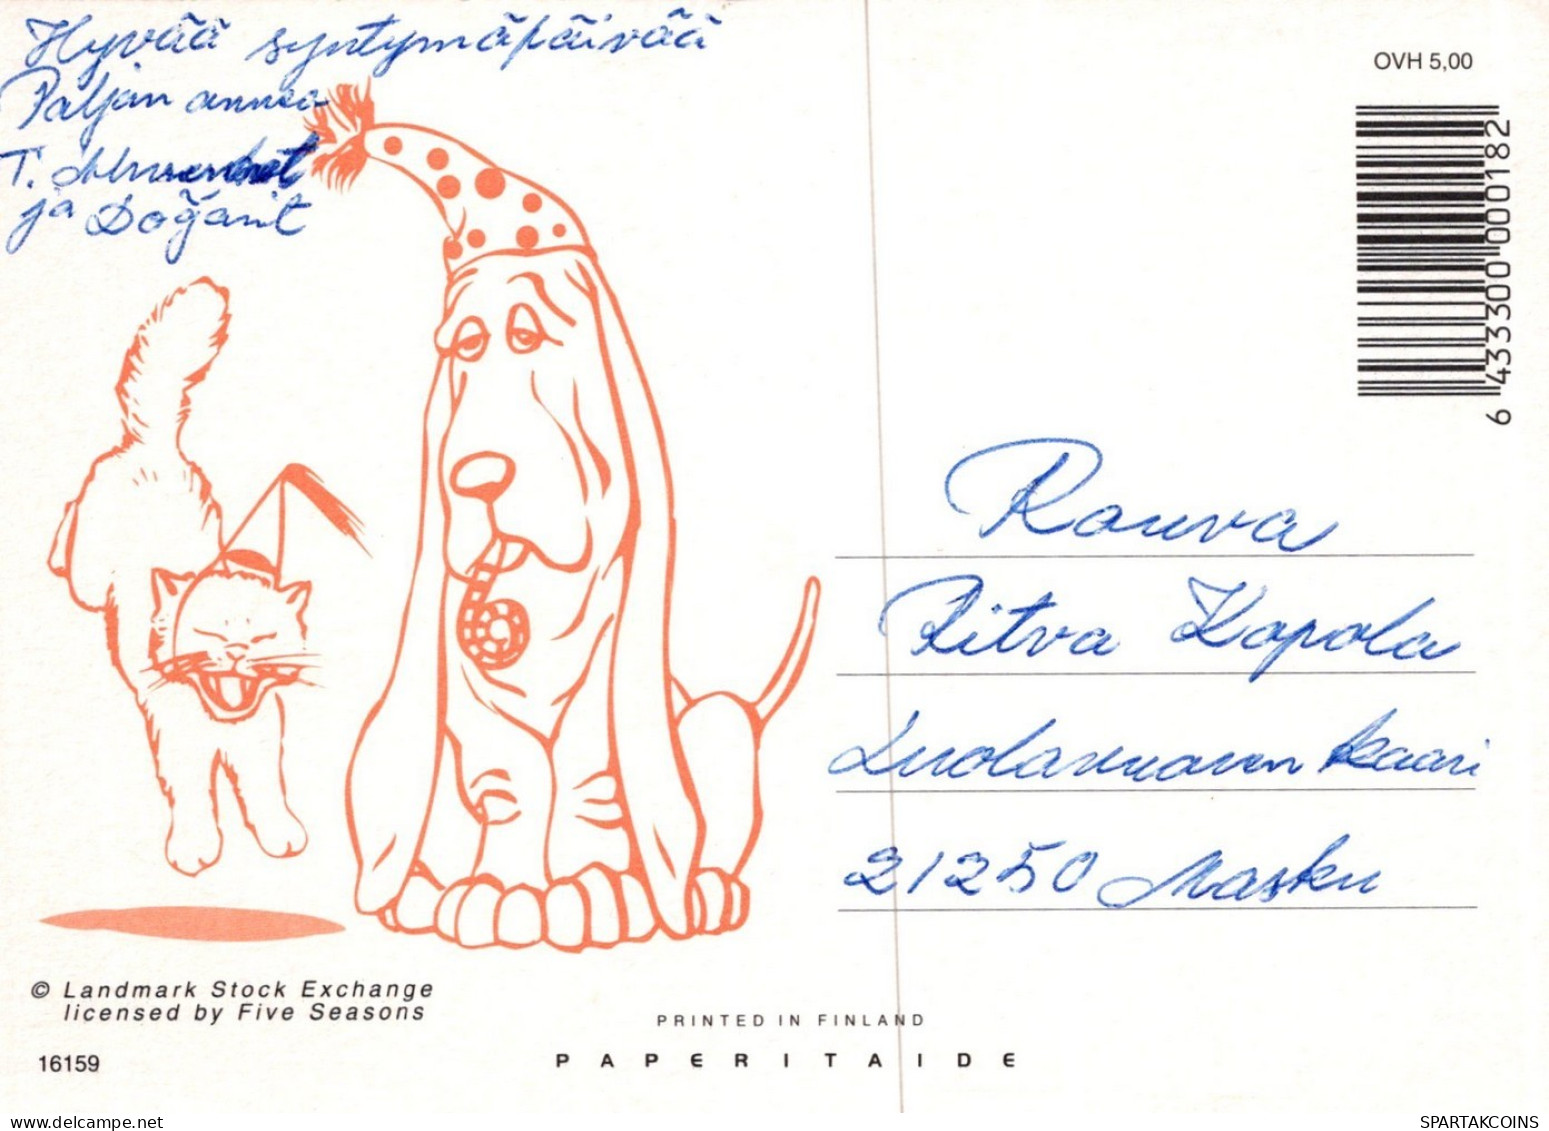 Hyvää syntymäpäivää
Paljon onnea
T.
ja Doğanit
OVH 5,00
6 433300 000182
Rouva
Ritva Kopola
kaari
21250 Masku
© Landmark Stock Exchange
licensed by Five Seasons
PRINTED IN FINLAND
16159
PAPERITAIDE
delcampe.net
SPARTAKCOINS